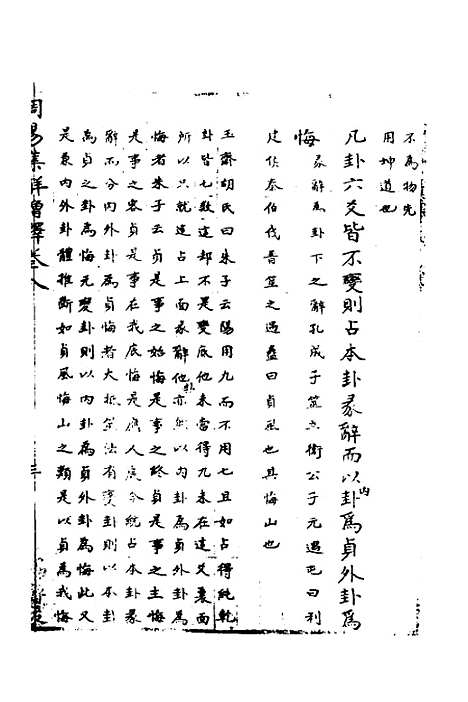 不為物先
用坤道也
凡卦六爻皆不變則占本卦彖辭而以內卦為貞外卦為
悔 彖辭為卦下之辭孔成子筮立衛公子元遇屯曰利
建侯秦伯伐晉筮之遇蠱曰貞風也其悔山也
玉齋胡氏曰朱子云陽用九而不用七且如占得純乾
卦皆七數這却不是變底他未當得九未在這爻裏面
所以只就這占上面彖辭他卦亦然以內卦為貞外卦為
悔者朱子云貞是事之始悔是事之終貞是事之主悔
是事之客貞是事在我底悔是應人底今統占本卦彖
辭而分內外卦為貞悔者大抵筮法有變卦則以本卦
為貞之卦為悔无變卦則以內卦為貞外卦為悔此又
是兼內外卦體推斷如貞風悔山之類是以貞為我悔
周易集詳增釋卷八